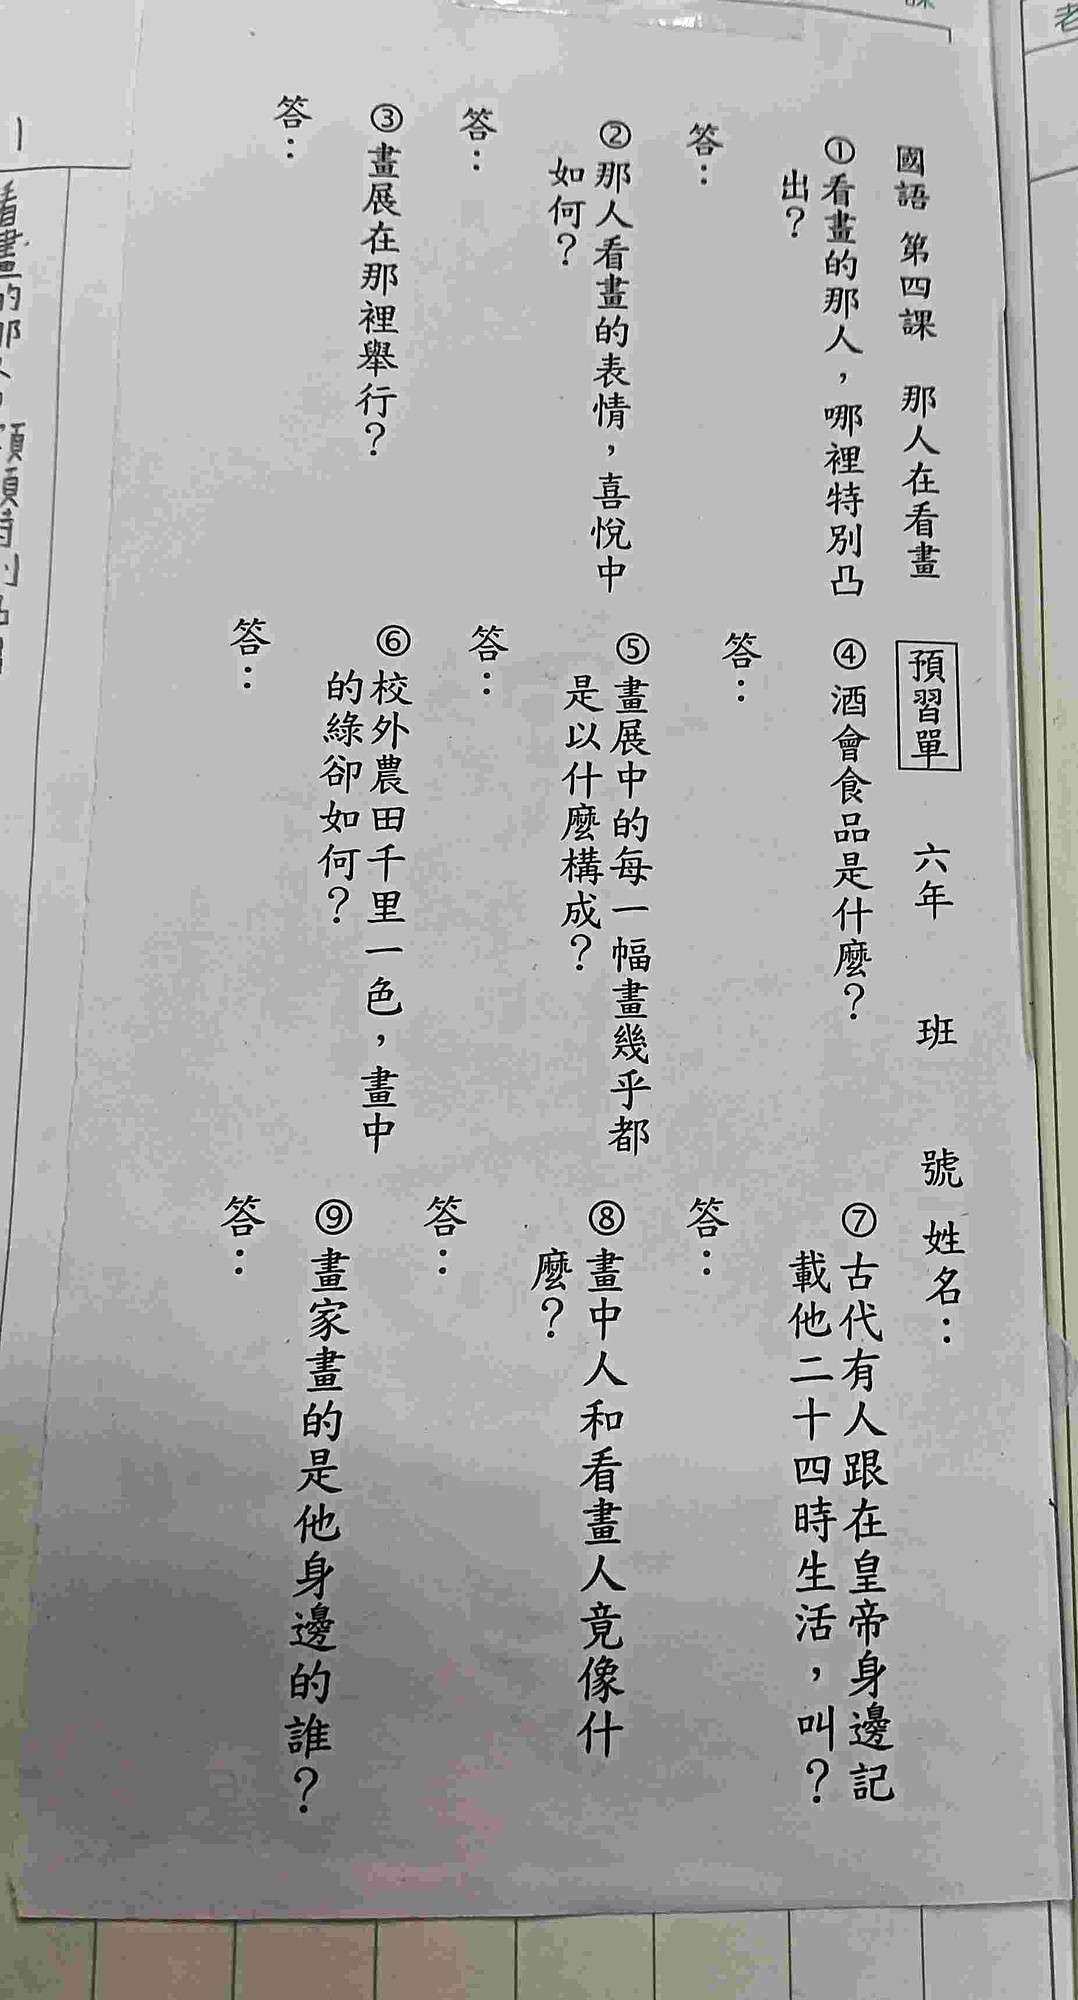 國語 第四課 那人在看畫 預習單 六年 班 號 姓名：
①看畫的那人，哪裡特別凸
出？
答：
②那人看畫的表情，喜悅中
如何？
答：
③畫展在那裡舉行？
答：
④酒會食品是什麼？
答：
⑤畫展中的每一幅畫幾乎都
是以什麼構成？
答：
⑥校外農田千里一色，畫中
的綠卻如何？
答：
⑦古代有人跟在皇帝身邊記
載他二十四時生活，叫？
答：
⑧畫中人和看畫人竟像什
麼？
答：
⑨畫家畫的是他身邊的誰？
答：